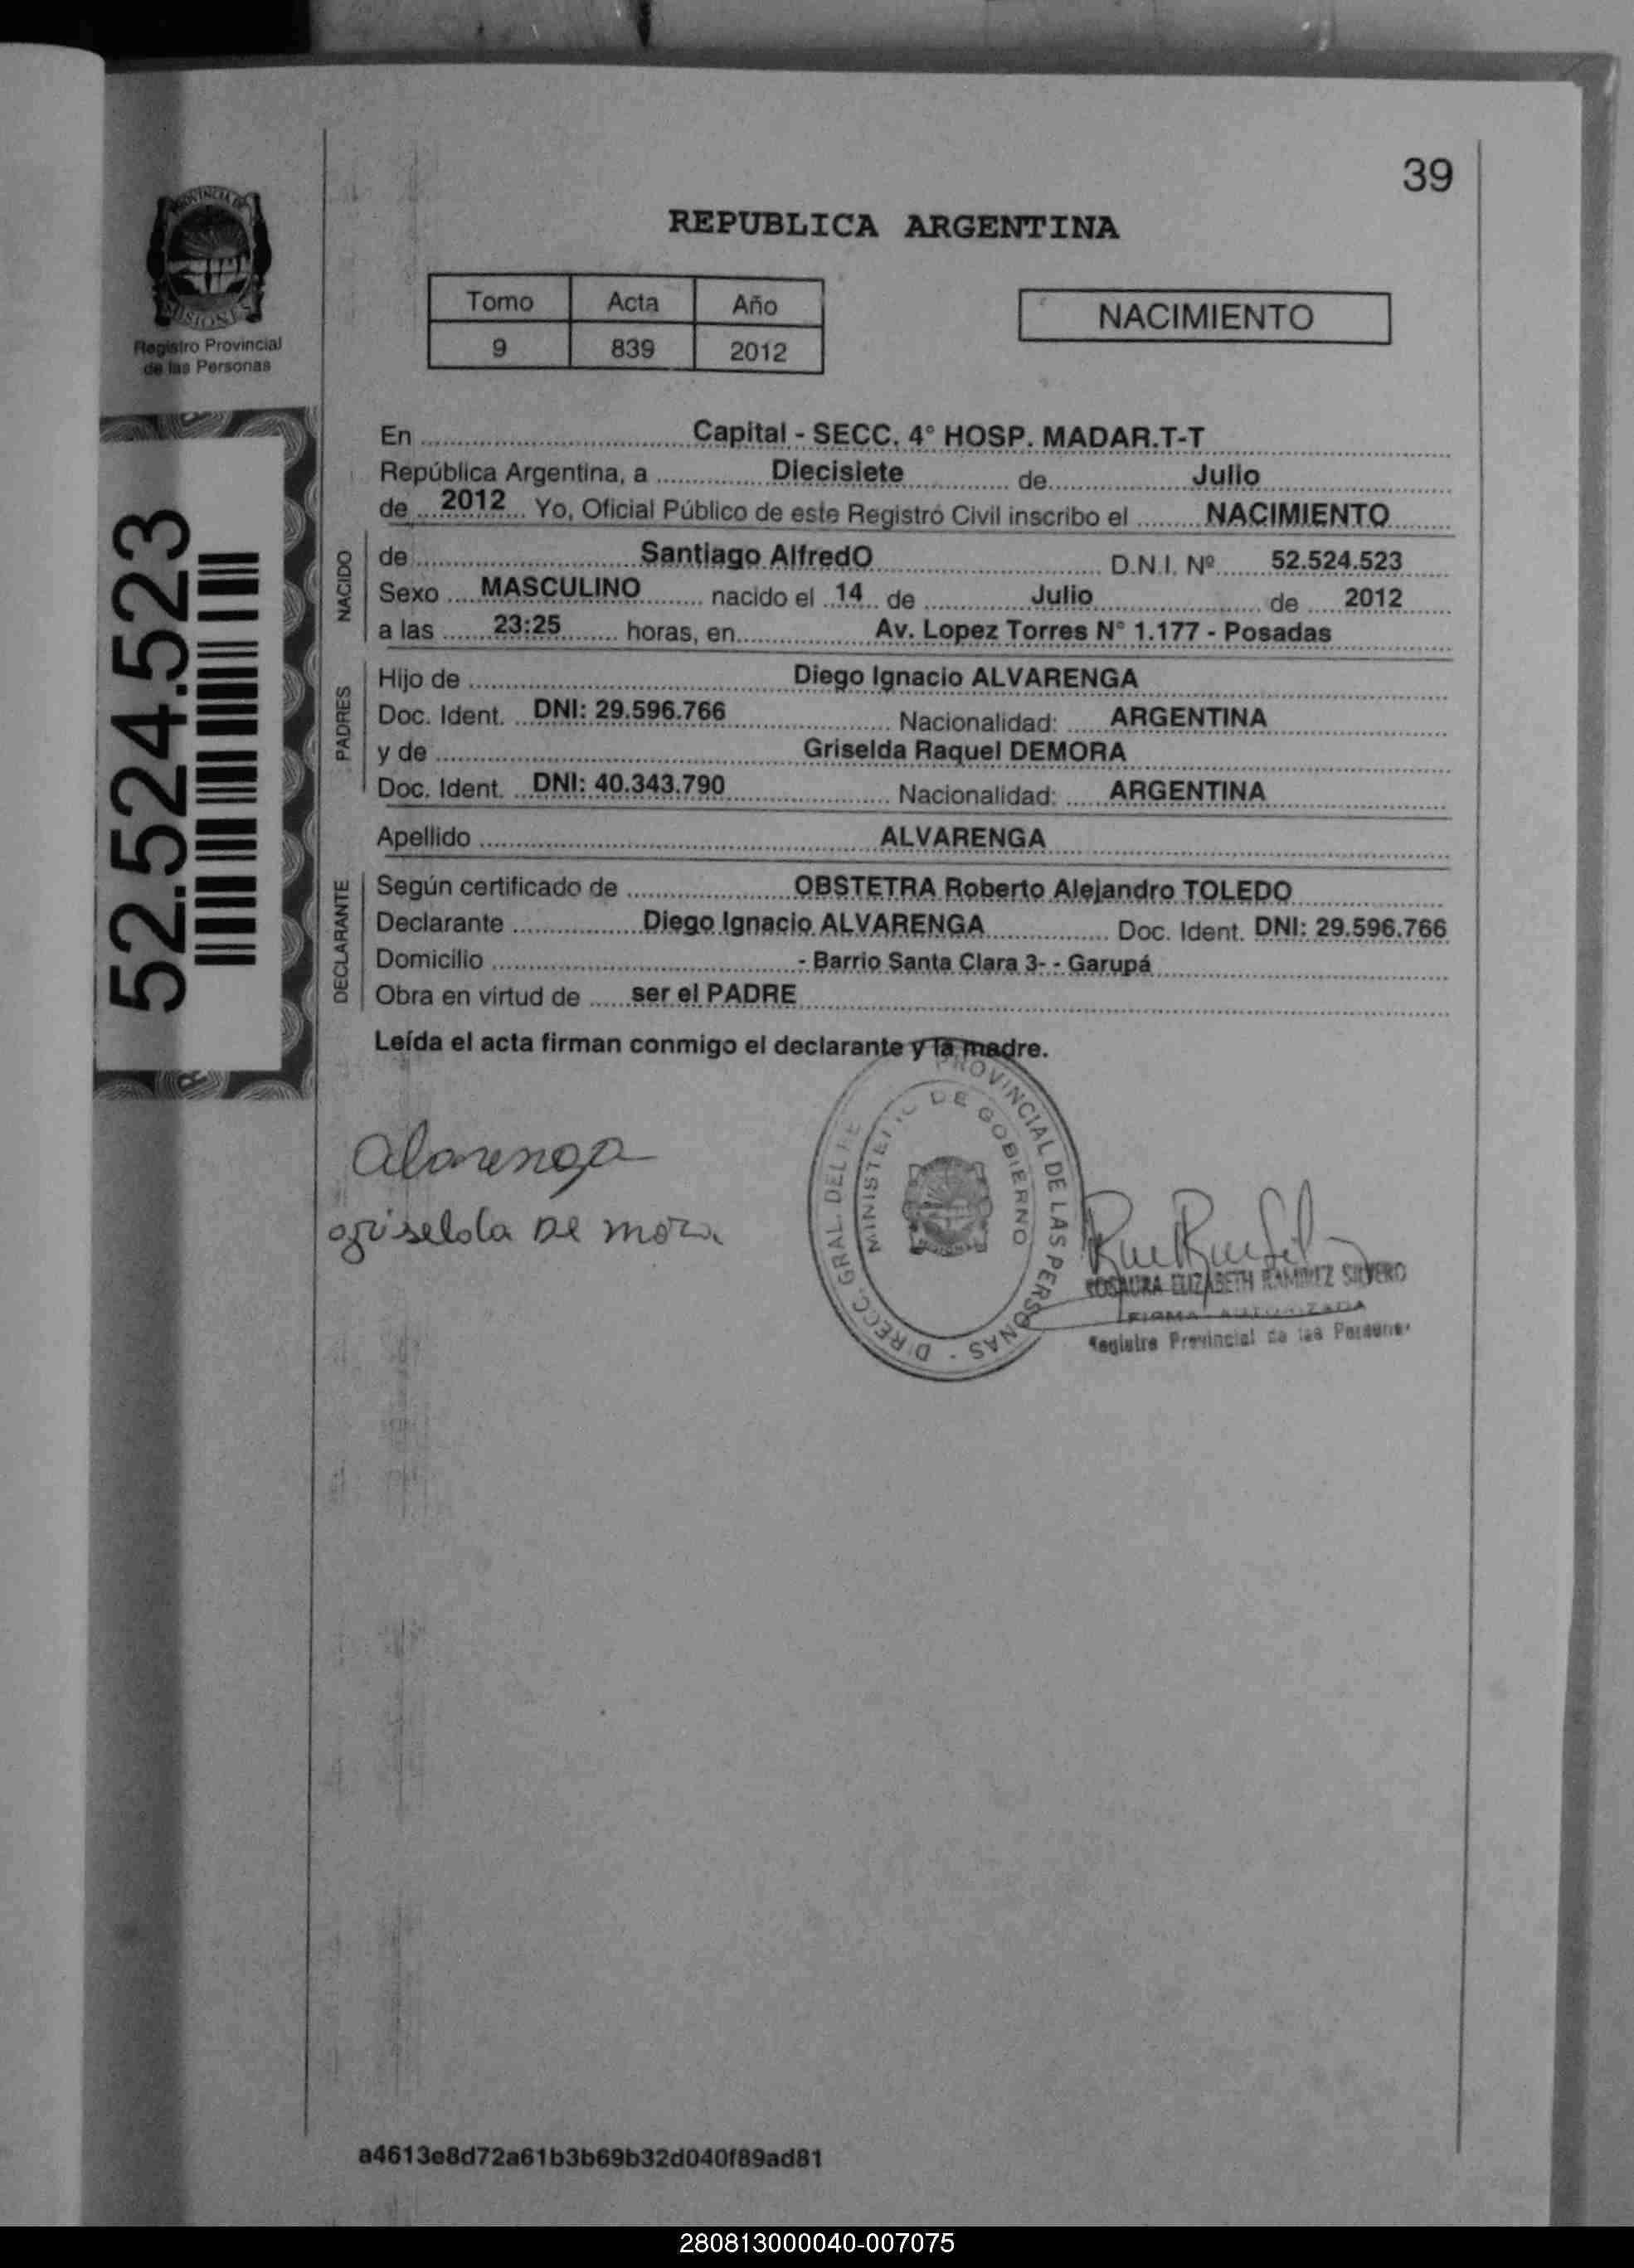 39
REPUBLICA ARGENTINA
PROVINCIA DE
MISIONES
Registro Provincial
de las Personas
Tomo Acta Año
9 839 2012
NACIMIENTO
52.524.523
En Capital - SECC. 4° HOSP. MADAR.T-T
República Argentina, a Diecisiete de Julio
de 2012 Yo, Oficial Público de este Registro Civil inscribo el NACIMIENTO
NACIDO
de Santiago AlfredO D.N.I. Nº 52.524.523
Sexo MASCULINO nacido el 14 de Julio de 2012
a las 23:25 horas, en Av. Lopez Torres N° 1.177 - Posadas
PADRES
Hijo de Diego Ignacio ALVARENGA
Doc. Ident. DNI: 29.596.766 Nacionalidad: ARGENTINA
y de Griselda Raquel DEMORA
Doc. Ident. DNI: 40.343.790 Nacionalidad: ARGENTINA
Apellido ALVARENGA
DECLARANTE
Según certificado de OBSTETRA Roberto Alejandro TOLEDO
Declarante Diego Ignacio ALVARENGA Doc. Ident. DNI: 29.596.766
Domicilio - Barrio Santa Clara 3- - Garupá
Obra en virtud de ser el PADRE
Leída el acta firman conmigo el declarante y la madre.
Alvarenga
griselda De mora
DIRECC. GRAL. DEL RE PROVINCIAL DE LAS PERSONAS -
MINISTERIO DE GOBIERNO
ROSAURA ELIZABETH RAMIREZ SILVERO
FIRMA AUTORIZADA
Registro Provincial de las Personas
a4613e8d72a61b3b69b32d040f89ad81
280813000040-007075